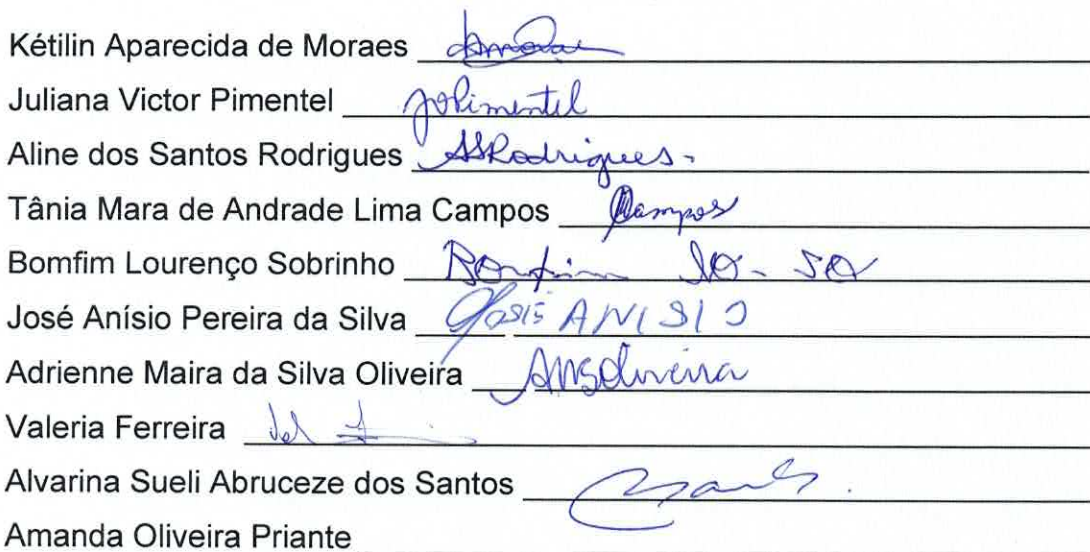 Kétilin Aparecida de Moraes
Juliana Victor Pimentel JvPimentel
Aline dos Santos Rodrigues ASRodrigues.
Tânia Mara de Andrade Lima Campos Campos
Bomfim Lourenço Sobrinho Bomfim
José Anísio Pereira da Silva José ANISIO
Adrienne Maira da Silva Oliveira AMSOliveira
Valeria Ferreira
Alvarina Sueli Abruceze dos Santos
Amanda Oliveira Priante